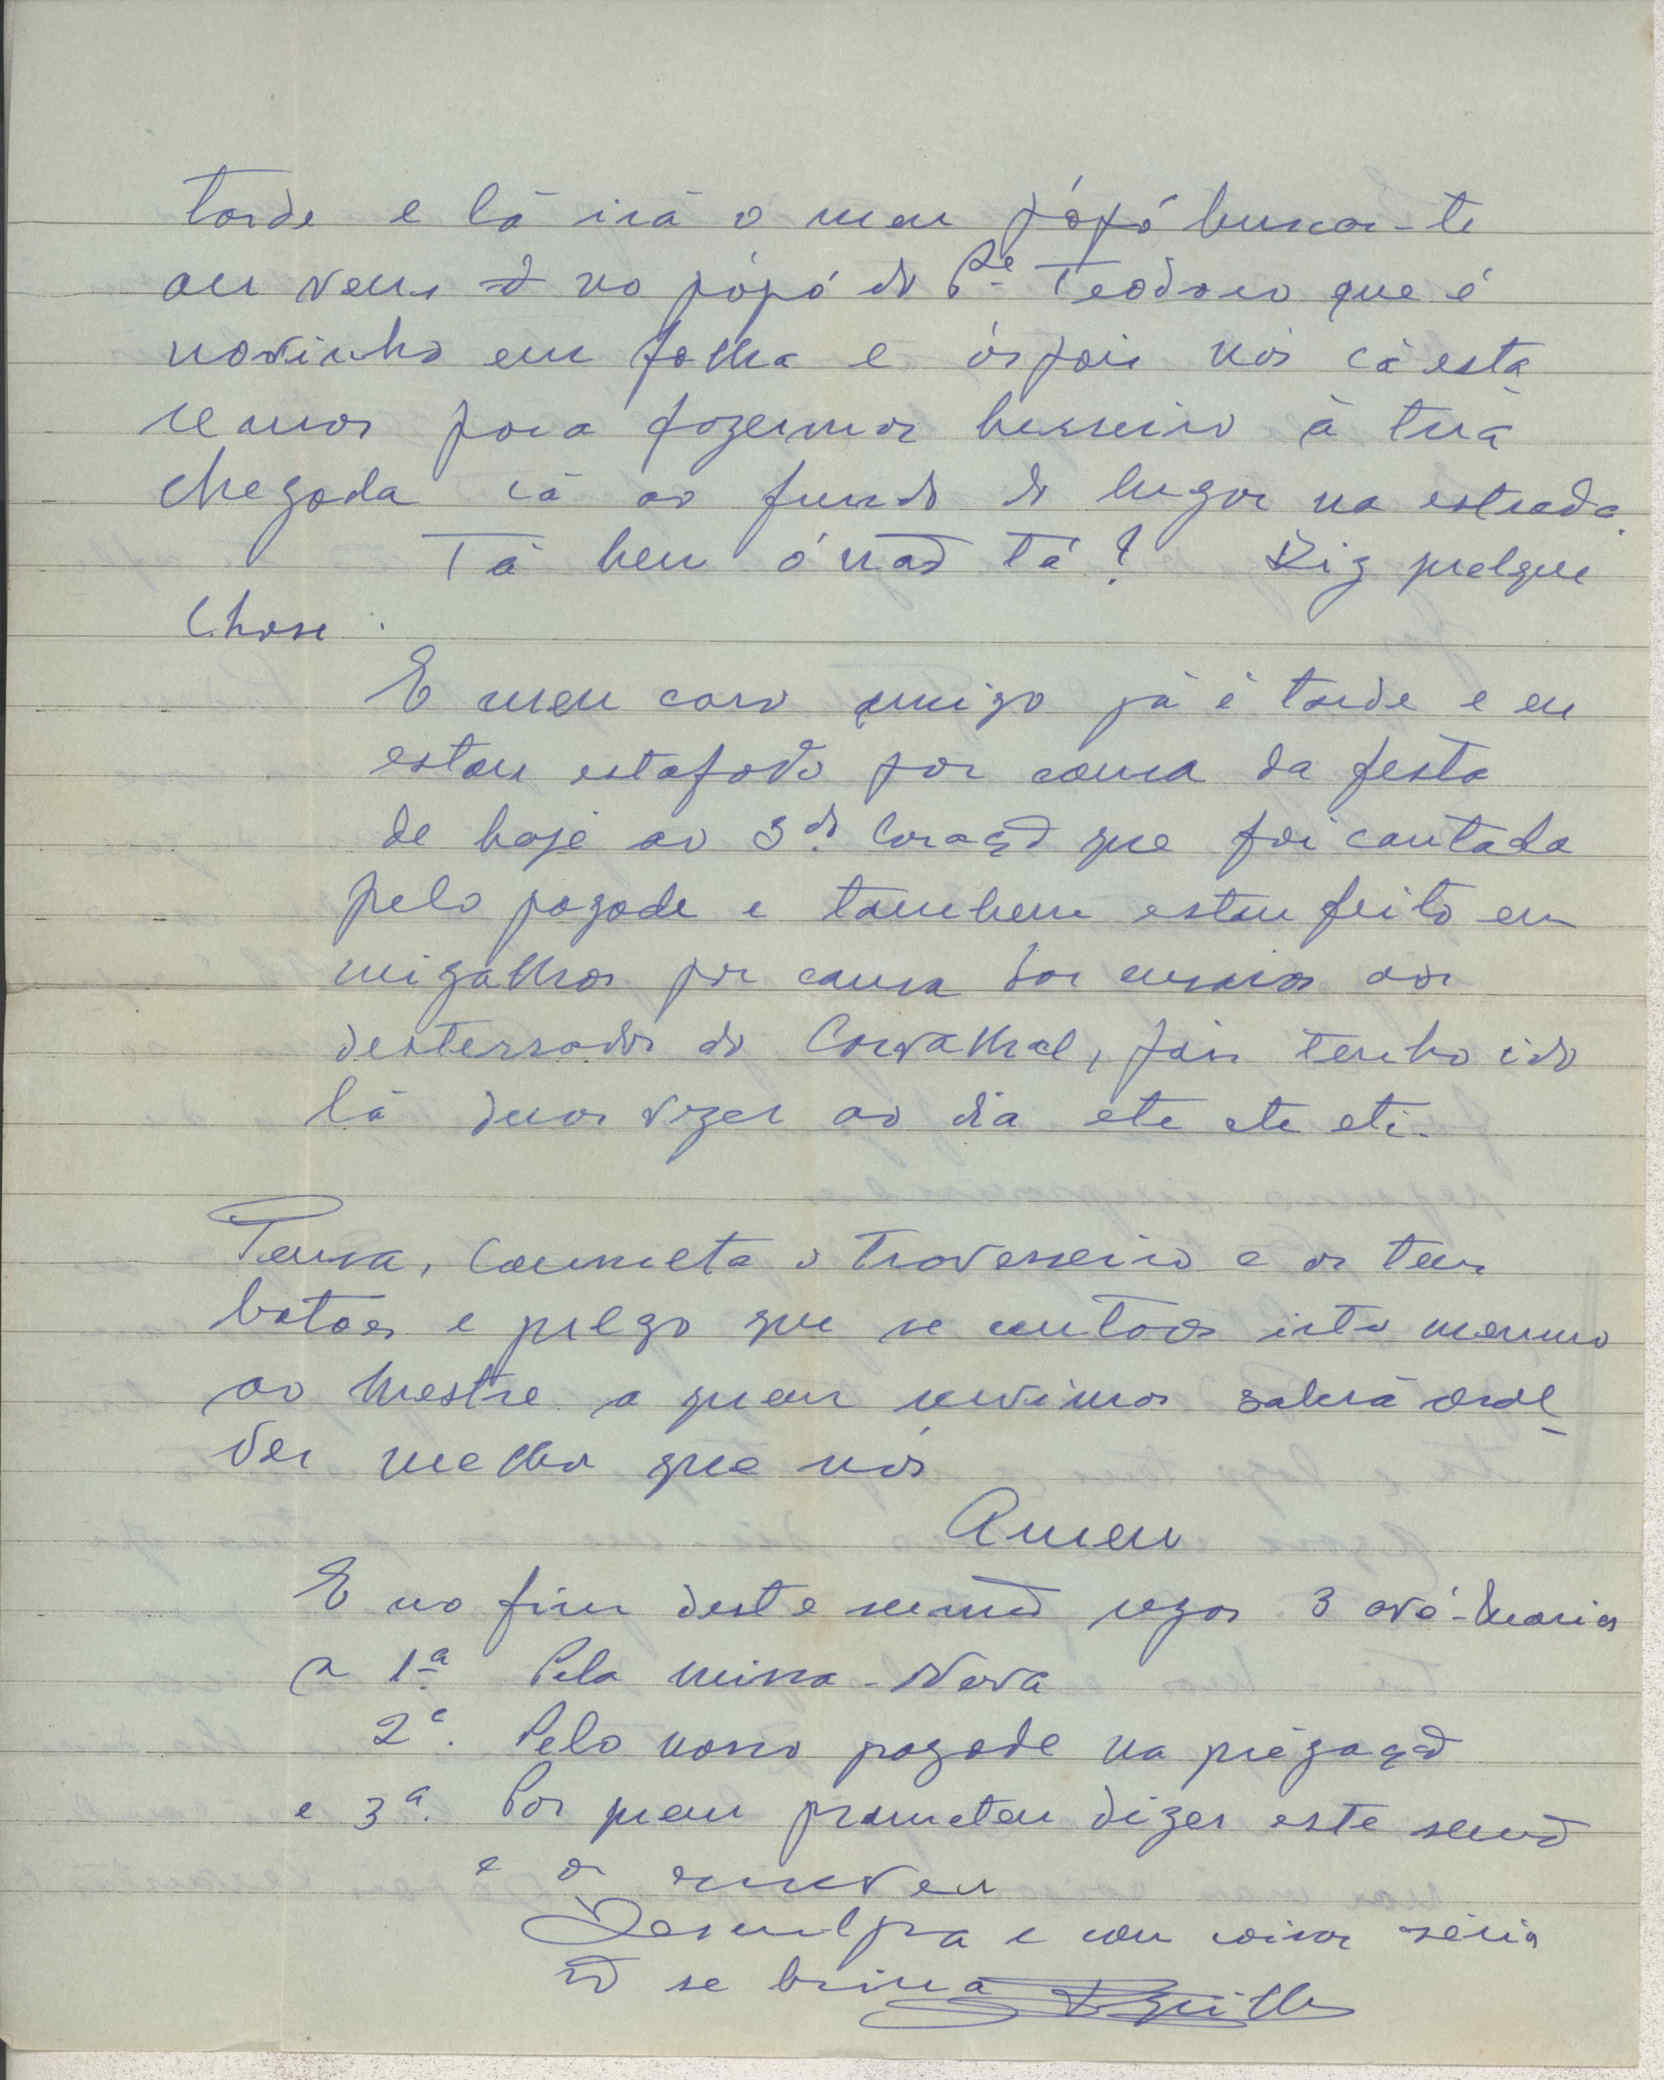 tarde e lá irá o meu pópó buscar-te
ou vens no pópó do Pe Teodoro que é
novinho em folha e óspois nós cá esta
remos para fazermos barreiro à tua
chegada cá ao fundo do lugar na estrada.
Tá bem ó não tá? Diz quelque
chose.
E meu caro amigo já é tarde e eu
estou estafado por causa da festa
de hoje ao S.do Coração que foi cantada
pelo pagode e tambem estou feito em
migalhas por causa dos ensaios aos
desterrados do Carvalhal, pois tenho ido
lá duas vezes ao dia etc etc etc.
Pensa, consulta o travesseiro e os teus
botões e prega que se contares isto mesmo
ao Mestre a quem servimos saberá
melhor que nós
Amen
E no fim deste sermão rezas 3 avé-Marias
a 1ª Pela missa-Nova
2ª. Pelo nosso pagode na prégação
e 3ª. Por quem prometeu dizer este sermão
e o
Desculpa e com coisas sérias
não se brinca